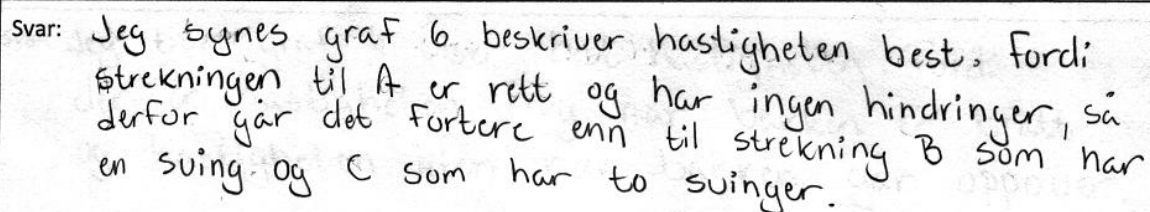 Svar: Jeg synes graf 6 beskriver hastigheten best, fordi
strekningen til A er rett og har ingen hindringer, så
derfor går det fortere enn til strekning B som har
en sving. og C som har to svinger.